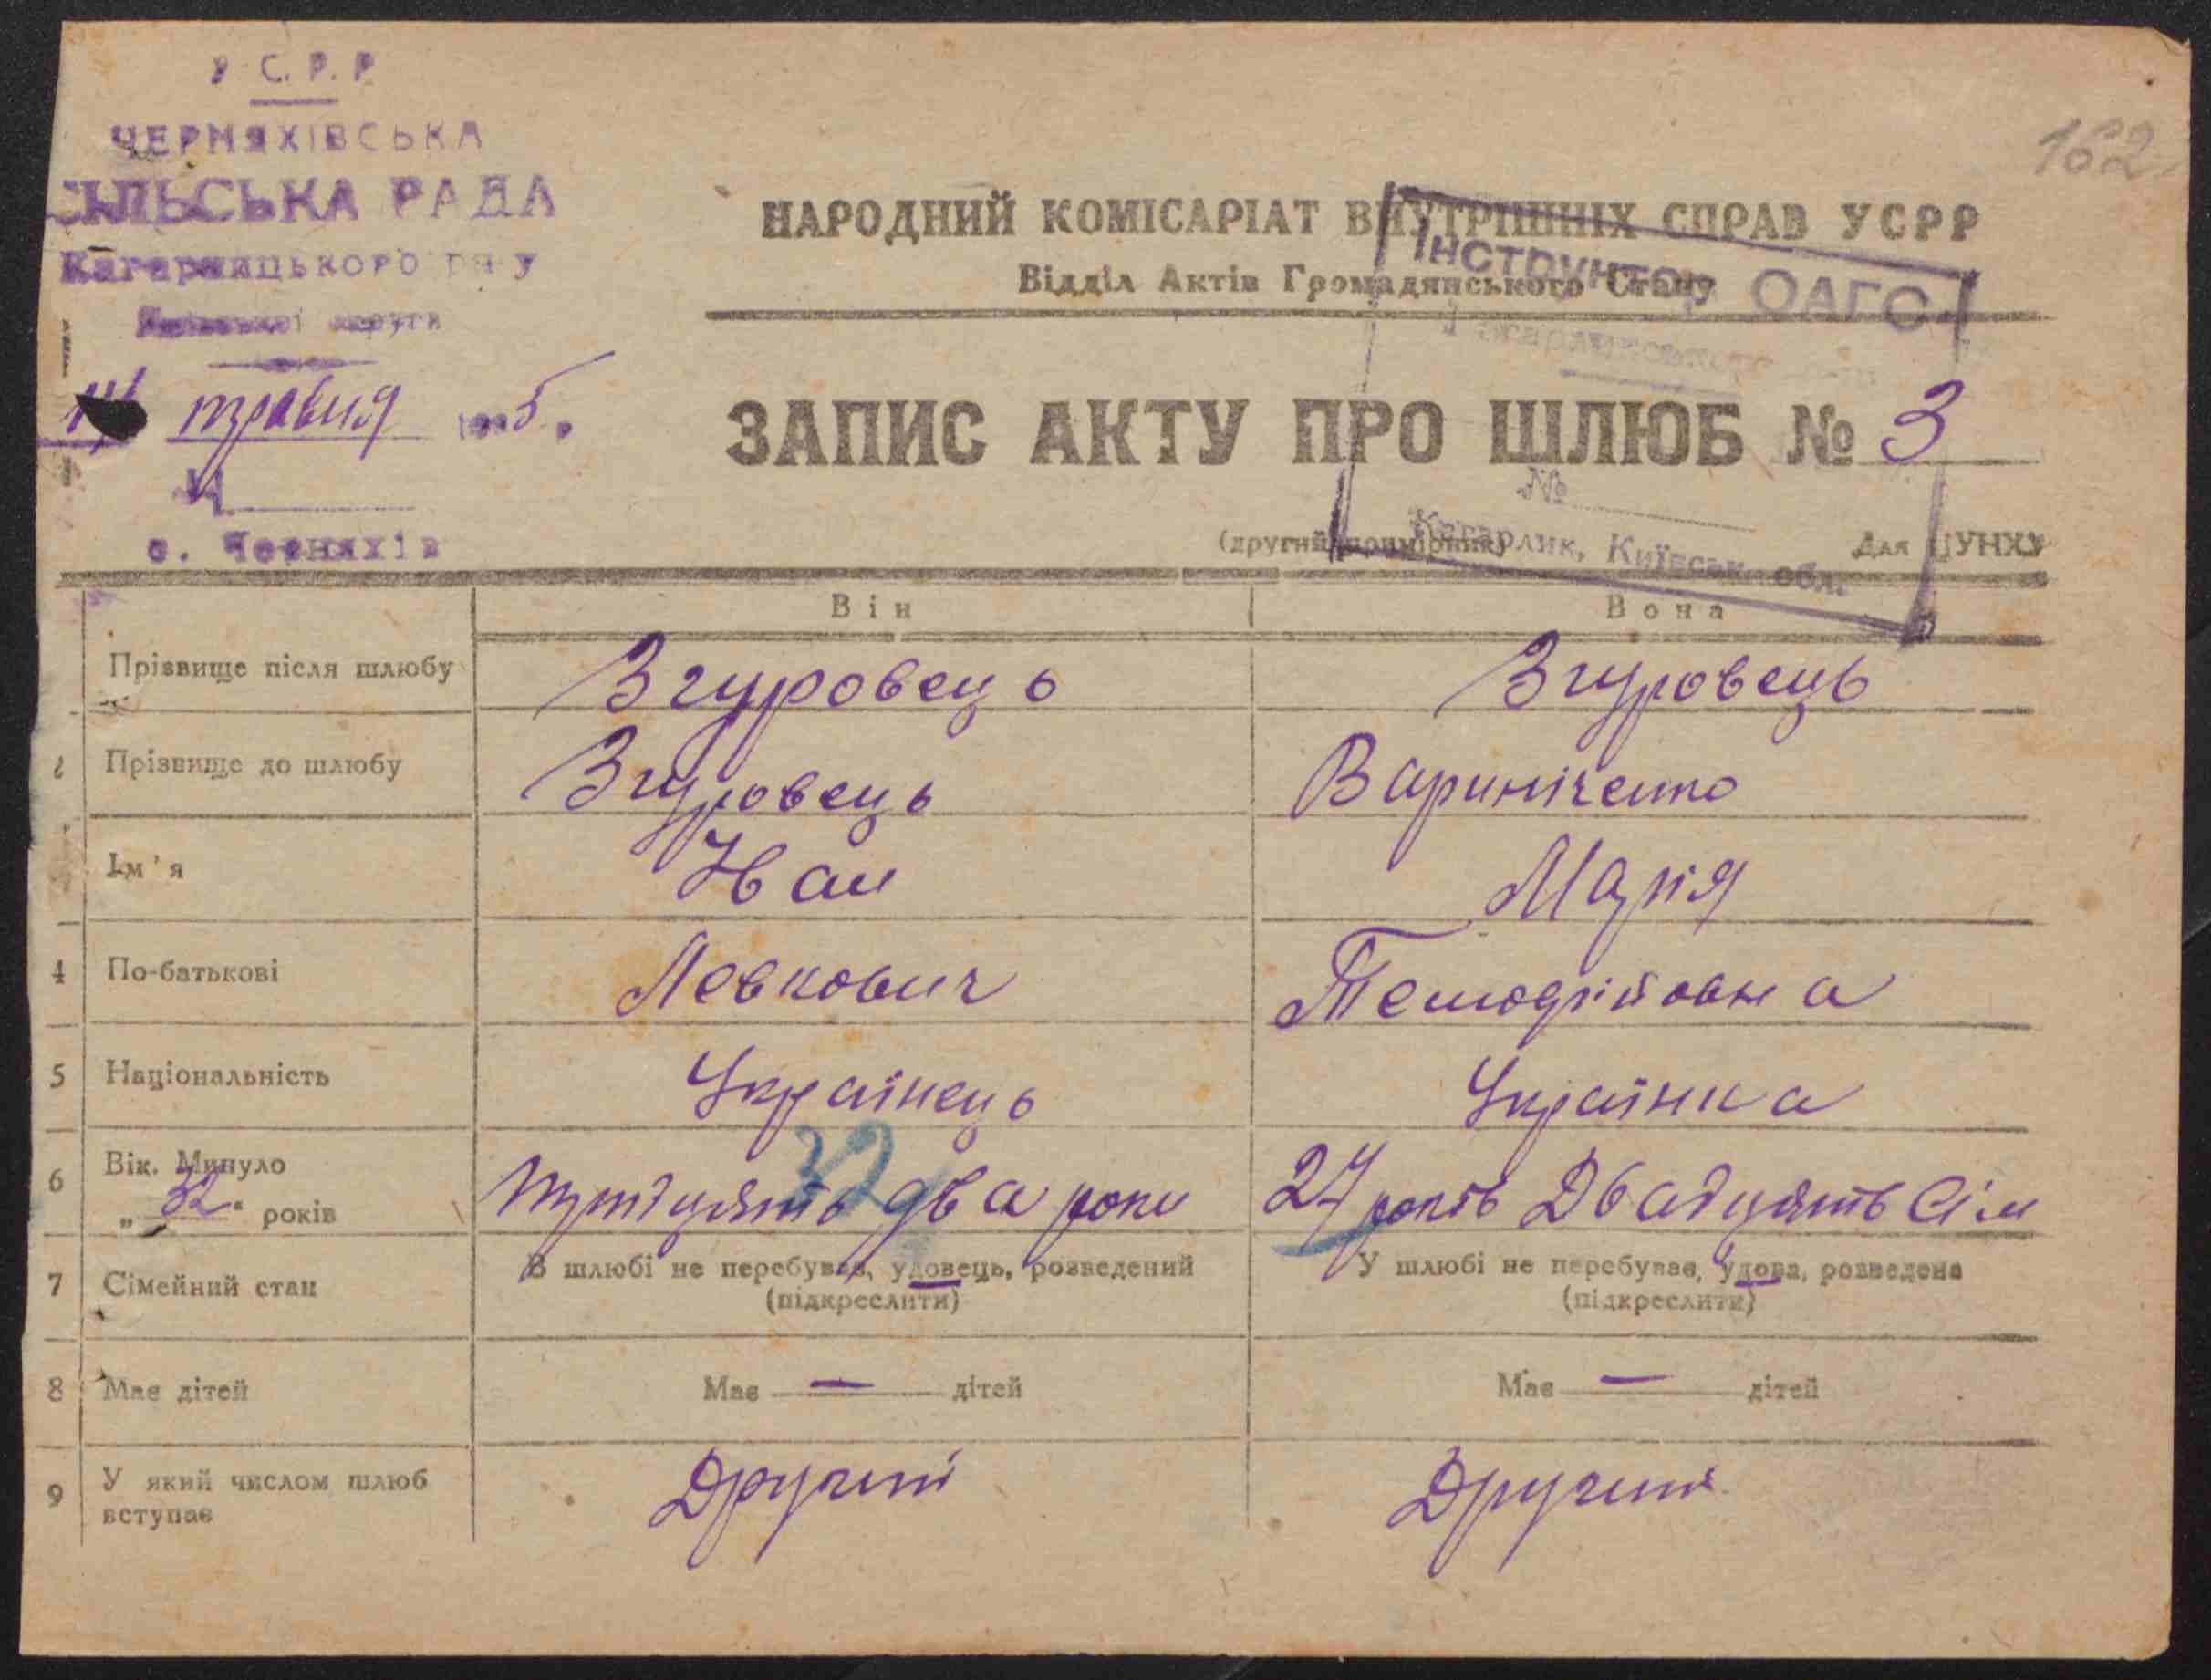 У С. Р. Р
ЧЕРНЯХІВСЬКА
СІЛЬСЬКА РАДА
Кагарлицького р-ну
округи
травня 5
с. Черняхів
162
НАРОДНИЙ КОМІСАРІАТ ВНУТРІШНІХ СПРАВ УСРР
Відділ Актів Громадянського Стану
Інструктор ОАГС
Кагарликського
ЗАПИС АКТУ ПРО ШЛЮБ № 3
№
(другий примірник) Для ЦУНХУ
Кагарлик, Київськ. обл.
Він Вона
Прізвище після шлюбу Згуровець Згуровець
2 Прізвище до шлюбу Згуровець Вариніченко
Ім'я Іван Марія
4 По-батькові Левкович
5 Національність Українець Українка
6 Вік. Минуло „32" років Тритцять два роки 32 27 років Двадцять Сім
7 Сімейний стан В шлюбі не перебував, удовець, розведений У шлюбі не перебуває, удова, розведена
(підкреслити) (підкреслити)
8 Має дітей Має — дітей Має — дітей
9 У який числом шлюб Другий Другий
вступає